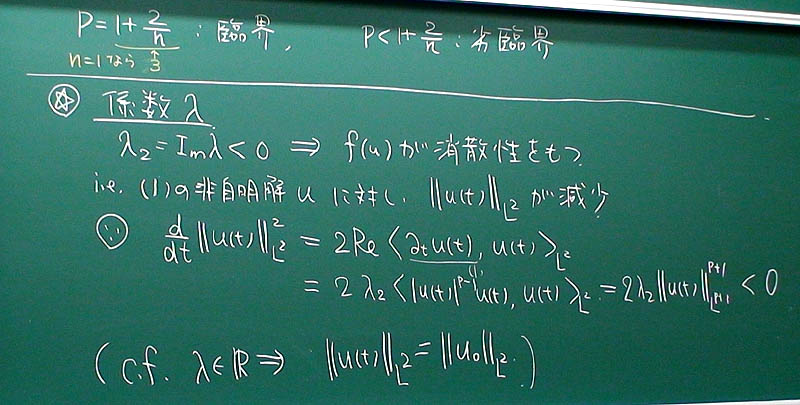 P = 1 + 2/n : 臨界, P < 1 + 2/n : 劣臨界
n=1なら 3
☆ 係数 λ
λ₂ = Imλ < 0 ⇒ f(u) が消散性をもつ
i.e. (1)の非自明解 u に対し, ‖u(t)‖_{L²} が減少
∵ d/dt ‖u(t)‖²_{L²} = 2Re⟨∂ₜu(t), u(t)⟩_{L²}
= 2λ₂⟨|u(t)|^{p-1}u(t), u(t)⟩_{L²} = 2λ₂‖u(t)‖^{p+1}_{L^{p+1}} < 0
(c.f. λ∈ℝ ⇒ ‖u(t)‖_{L²} = ‖u₀‖_{L²}.)